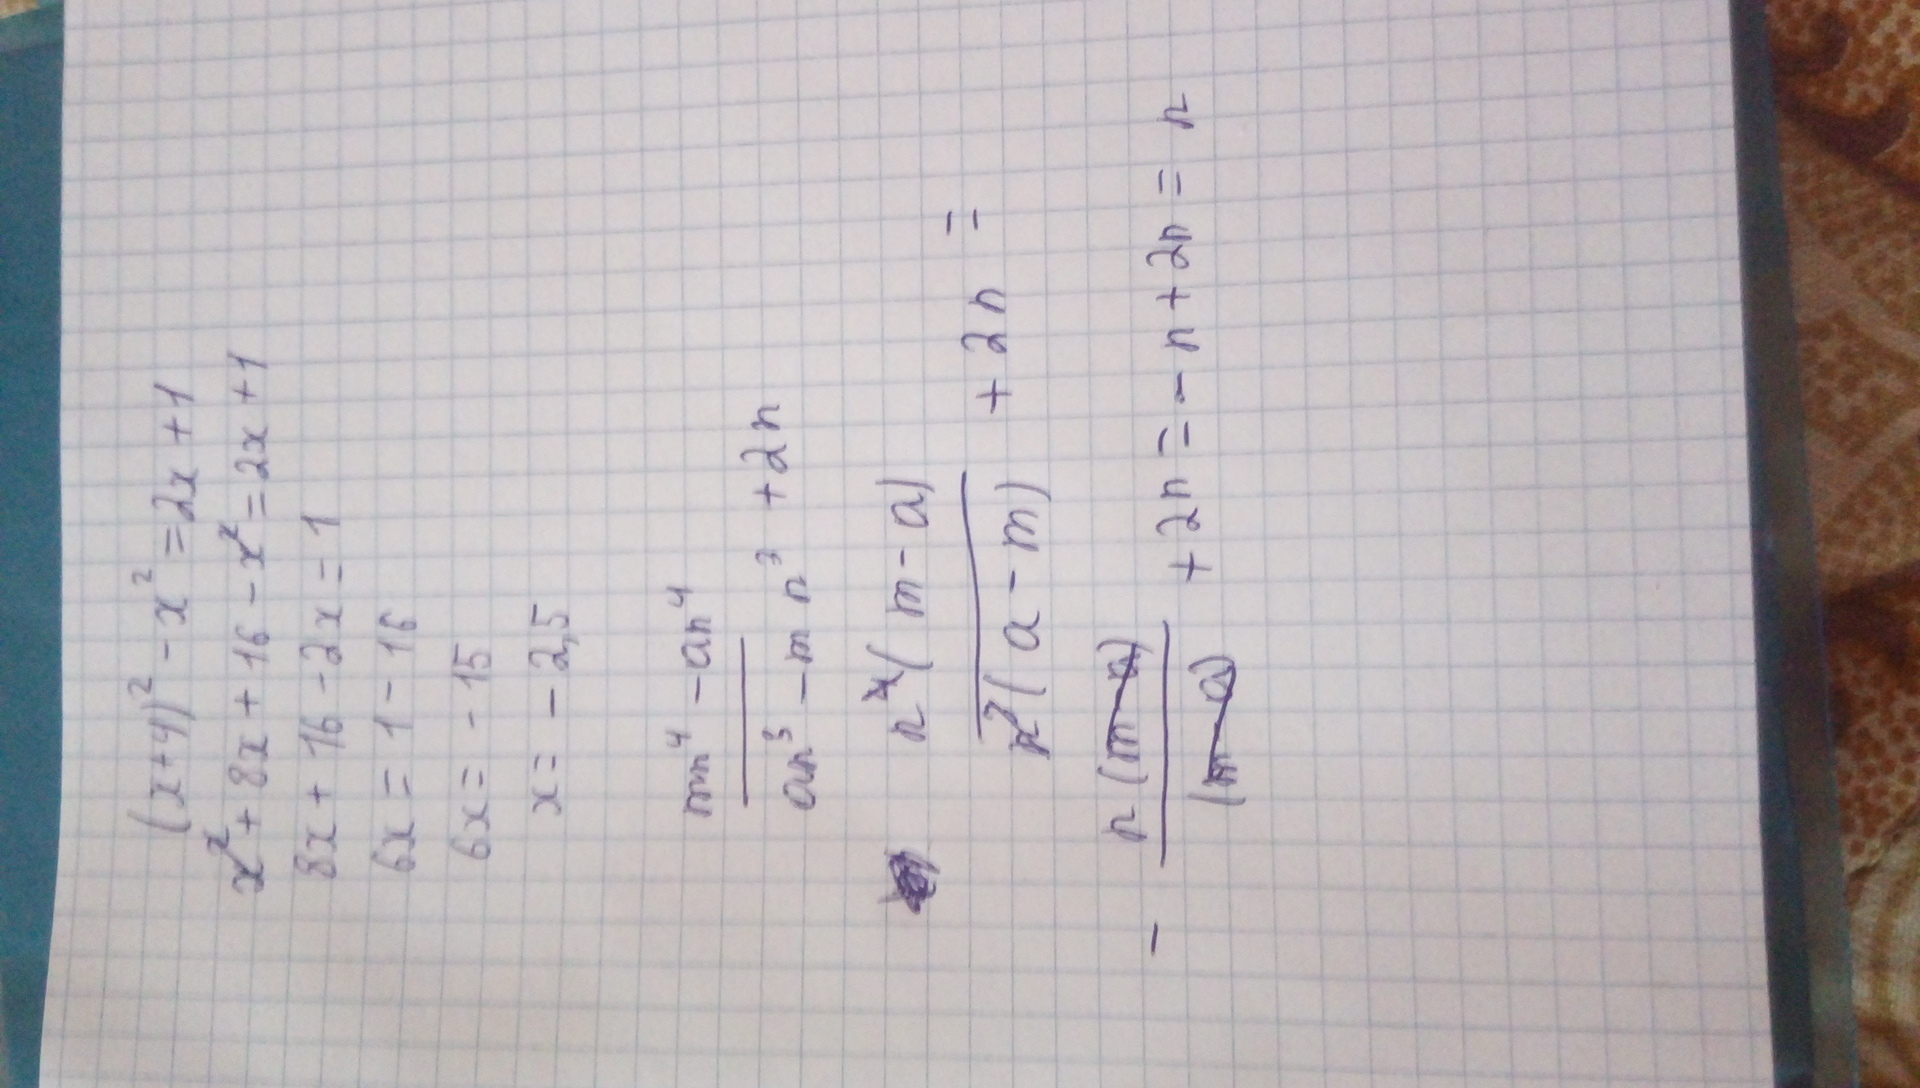 (x+4)² - x² = 2x + 1
x² + 8x + 16 - x² = 2x + 1
8x + 16 - 2x = 1
6x = 1 - 16
6x = - 15
x = - 2,5
mn⁴ - an⁴
an³ - mn³ + 2n
n⁴(m - a)
n³(a - m) + 2n =
- n(m-a)
(m-a) + 2n = - n + 2n = n